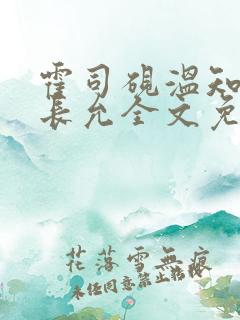 霍司砚温知
长允全文免
花落雪無痕
未经同意禁止转载